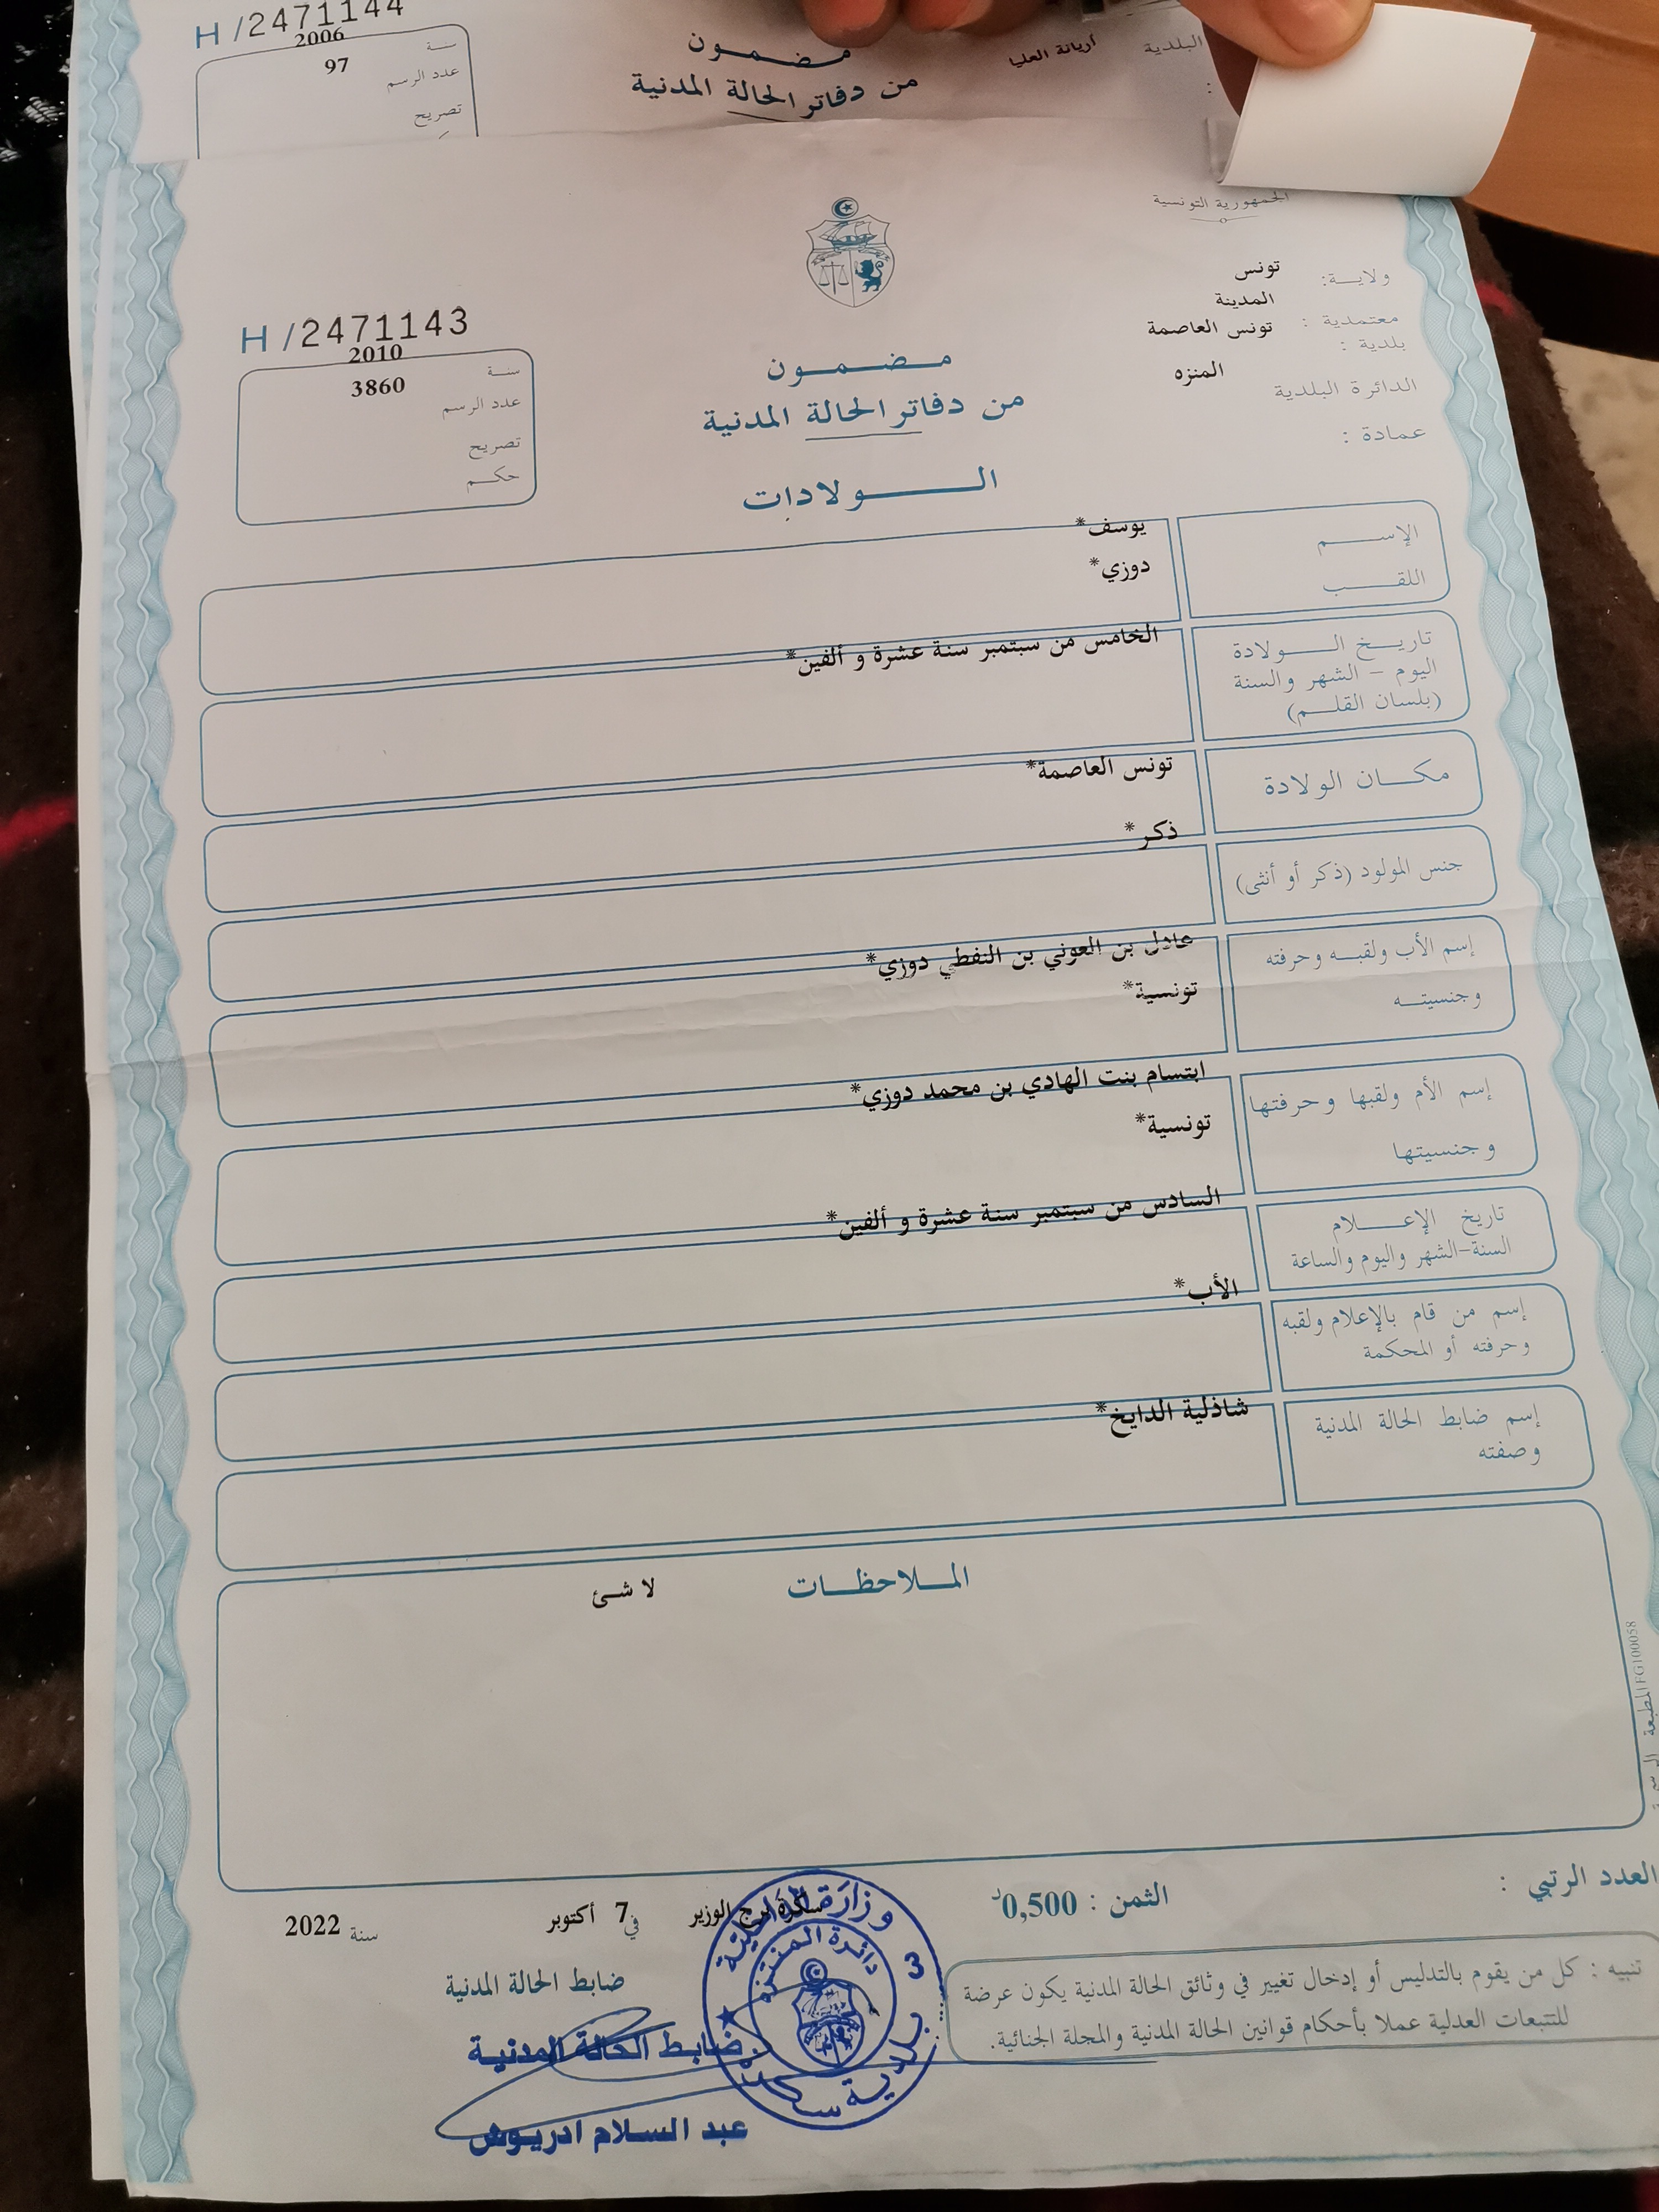 H /2471144
2006
سنة
97
عدد الرسم
تصريح
مضمون
من دفاتر الحالة المدنية
البلدية
اريانة العليا
الجمهورية التونسية
ولاية: تونس
المدينة
معتمدية : تونس العاصمة
بلدية :
الدائرة البلدية المنزه
عمادة :
H /2471143
2010
سنة
3860
عدد الرسم
تصريح
حكم
مضمون
من دفاتر الحالة المدنية
الولادات
الإسم يوسف*
اللقب دوزي*
تاريخ الولادة الخامس من سبتمبر سنة عشرة و ألفين*
اليوم - الشهر والسنة
(بلسان القلم)
مكان الولادة تونس العاصمة*
جنس المولود (ذكر أو أنثى) ذكر*
إسم الأب ولقبه وحرفته عادل بن العوني بن النفطي دوزي*
وجنسيته تونسية*
إسم الأم ولقبها وحرفتها ابتسام بنت الهادي بن محمد دوزي*
وجنسيتها تونسية*
تاريخ الإعلام السادس من سبتمبر سنة عشرة و ألفين*
السنة-الشهر واليوم والساعة
إسم من قام بالإعلام ولقبه الأب*
وحرفته أو المحكمة
إسم ضابط الحالة المدنية شاذلية الدايخ*
وصفته
الملاحظات
لا شئ
EG100058
العدد الرتبي :
الثمن : 0,500د
سكرة برج الوزير في 7 أكتوبر سنة 2022
ضابط الحالة المدنية
تنبيه : كل من يقوم بالتدليس أو إدخال تغيير في وثائق الحالة المدنية يكون عرضة
للتتبعات العدلية عملا بأحكام قوانين الحالة المدنية والمجلة الجنائية.
وزارة الداخلية
بلدية سكرة
3
ضابط الحالة المدنية
عبد السلام ادريوش